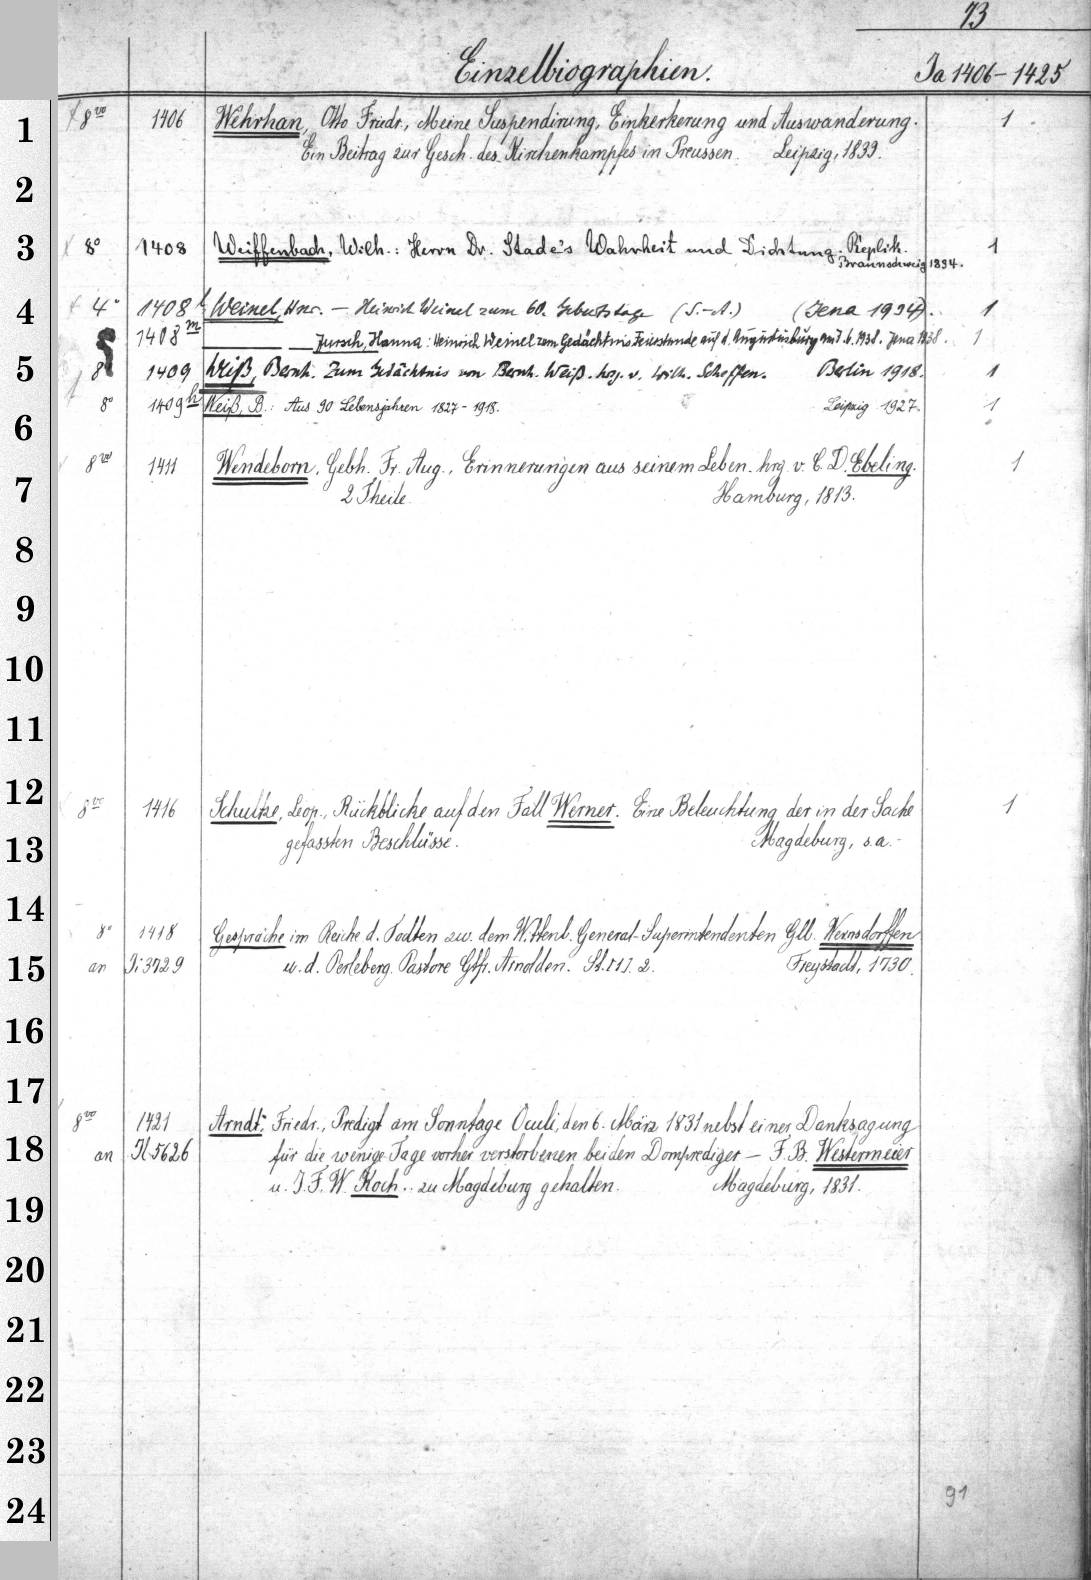 73
Einzelbiographien. Ja 1406-1425
1 8vo 1406 Wehrhan, Otto Friedr., Meine Suspendirung, Einkerkerung und Auswanderung. 1
Ein Beitrag zur Gesch. des Kirchenkampfes in Preussen. Leipzig, 1839.
2
3 8° 1408 Weiffenbach, Wilh.: Herrn Dr. Stade's Wahrheit und Dichtung. Replik. 1
Braunschweig 1894.
4 4° 1408 Weinel, — Heinrich Weinel zum 60. Geburtstage (S.-A.) (Jena 1934). 1
1408m — Jursch, Hanna: Heinrich Weinel zum Gedächtnis. Feierstunde auf d. Augustusburg am 7.6.1938. Jena 1938. 1
5 8° 1409 Weiß, Bernh. Zum Gedächtnis von Bernh. Weiß. hrg. v. Wilh. Scheffen. Berlin 1918. 1
6 8° 1409h Weiß, B.: Aus 90 Lebensjahren 1827-1918. Leipzig 1927. 1
8vo 1411 Wendeborn, Gebh. Fr. Aug., Erinnerungen aus seinem Leben. hrg. v. C. D. Ebeling. 1
7 2 Theile. Hamburg, 1813.
8
9
10
11
12 8vo 1416 Schultze, Leop., Rückblicke auf den Fall Werner. Eine Beleuchtung der in der Sache 1
13 gefassten Beschlüsse. Magdeburg, s.a.-
14
8° 1418 Gespräche im Reiche d. Todten zw. dem Wittenb. General-Superintendenten Gtl. Wernsdorffen
15 an Ji 3729 u. d. Perleberg. Pastore Gtfr. Arnolden. St. 1 2. Freystadt, 1730.
16
17
8vo 1421 Arndt, Friedr., Predigt am Sonntage Oculi, den 6. März 1831 nebst einer Danksagung
18 an Il 5626 für die wenige Tage vorher verstorbenen beiden Domprediger — F. B. Westermeier
19 u. J. F. W. Koch .. zu Magdeburg gehalten. Magdeburg, 1831.
20
21
22
23
24 91